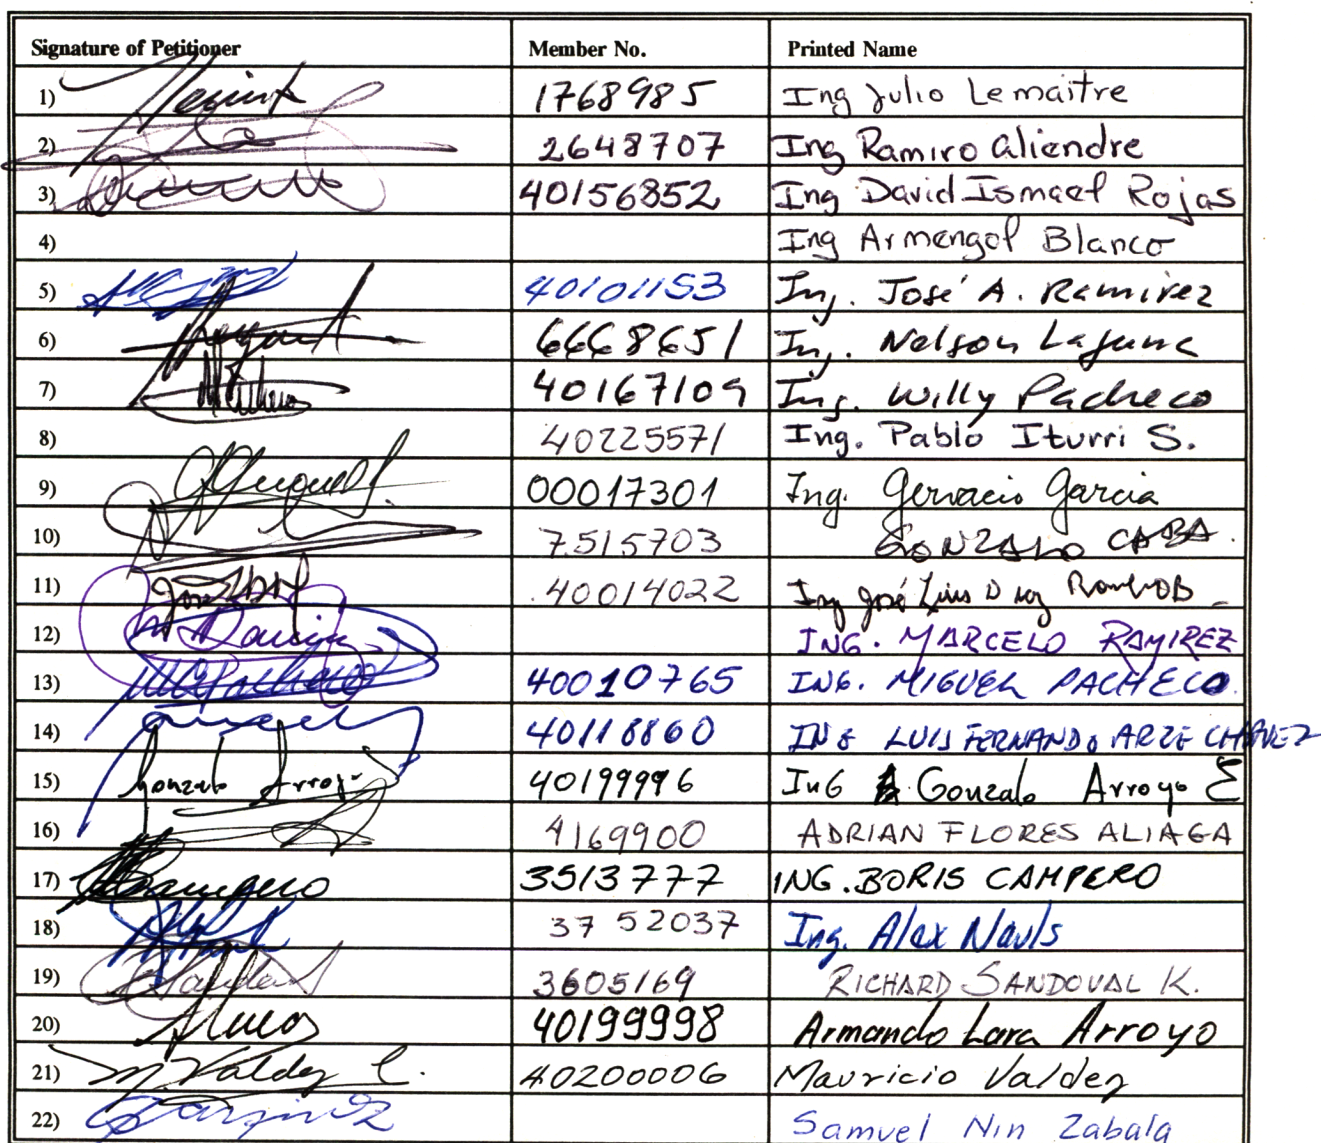 Signature of Petitioner Member No. Printed Name
1) 1768985 Ing Julio Lemaitre
2) 2648707 Ing Ramiro Aliendre
3) 40156852 Ing David Ismael Rojas
4) Ing Armengol Blanco
5) 40101153 Ing. José A. Ramirez
6) 6668651 Ing. Nelson
7) 40167109 Ing. Willy Pacheco
8) 40225571 Ing. Pablo Iturri S.
9) 00017301 Ing. Gervacio Garcia
10) 7515703 GONZALO CABA.
11) 40014022 Ing José Luis
12) ING. MARCELO RAMIREZ
13) 40010765 ING. MIGUEL PACHECO.
14) 40118860 ING LUIS FERNANDO ARZE CHAVEZ
15) Gonzalo Arroyo 40199996 ING Gonzalo Arroyo E
16) 4169900 ADRIAN FLORES ALIAGA
17) 3513777 ING. BORIS CAMPERO
18) 3752037 Ing. Alex Navls
19) 3605169 RICHARD SANDOVAL K.
20) 40199998 Armando Lara Arroyo
21) M. Valdez C. 40200006 Mauricio Valdez
22) Samuel Nin Zabala